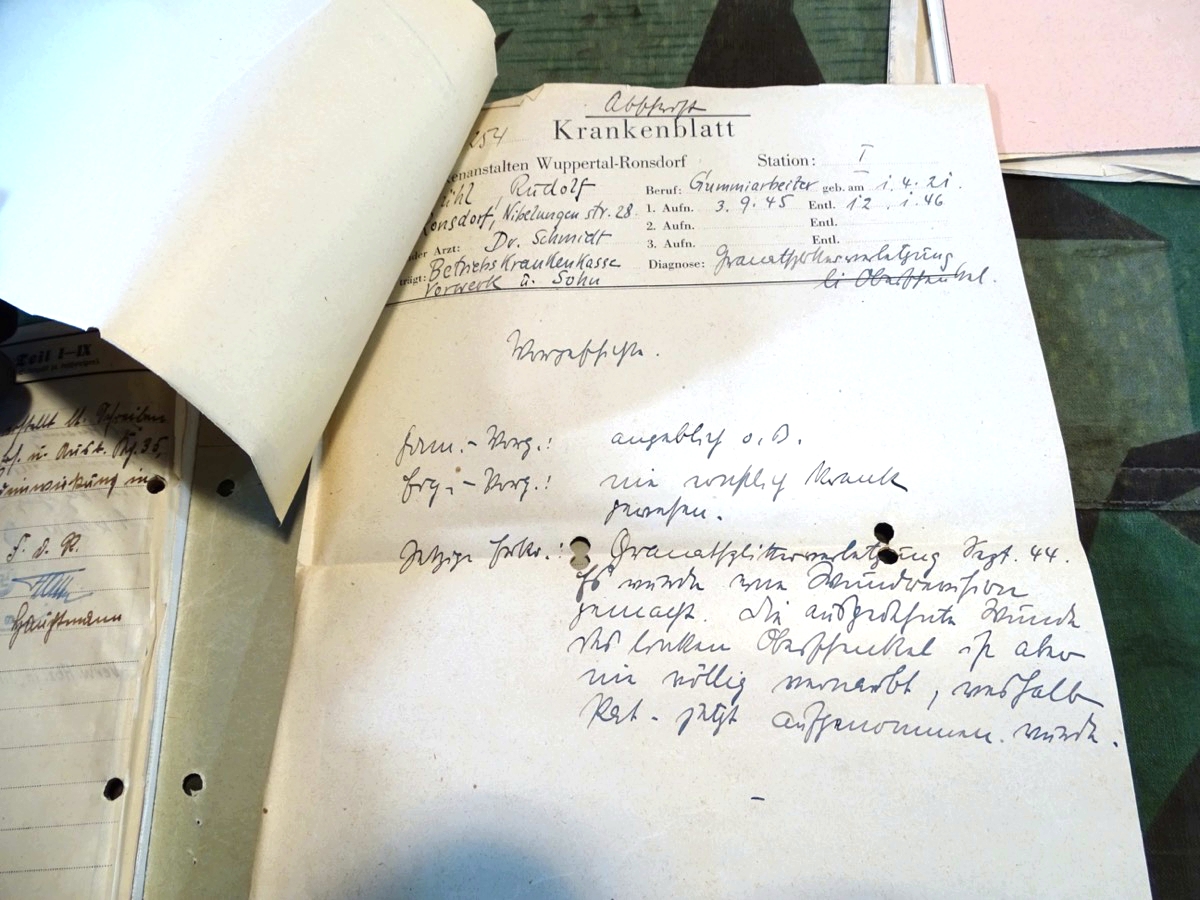 Abschrift
254
Krankenblatt
enanstalten Wuppertal-Ronsdorf Station: I
ühl, Rudolf Beruf: Gummiarbeiter geb. am 1.4.21.
Ronsdorf, Nibelungenstr. 28. 1. Aufn. 3.9.45 Entl. 12.1.46
2. Aufn. Entl.
der Arzt: Dr. Schmidt 3. Aufn. Entl.
trägt: Betriebskrankenkasse Diagnose: Granatsplitterverletzung
Vorwerk u. Sohn li Oberschenkel.
Vorgeschichte.
Fam.-Vorg.: angeblich o.B.
Eig.-Vorg.: nie ernstlich krank
gewesen.
Jetzige Erkr.: Granatsplitterverletzung Sept. 44.
Es wurde eine Wundrevision
gemacht. Die ausgedehnte Wunde
des linken Oberschenkel ist aber
nie völlig vernarbt, weshalb
Pat. jetzt aufgenommen wurde.
Teil I–IX
Schreiben
F. d. R.
Hauptmann